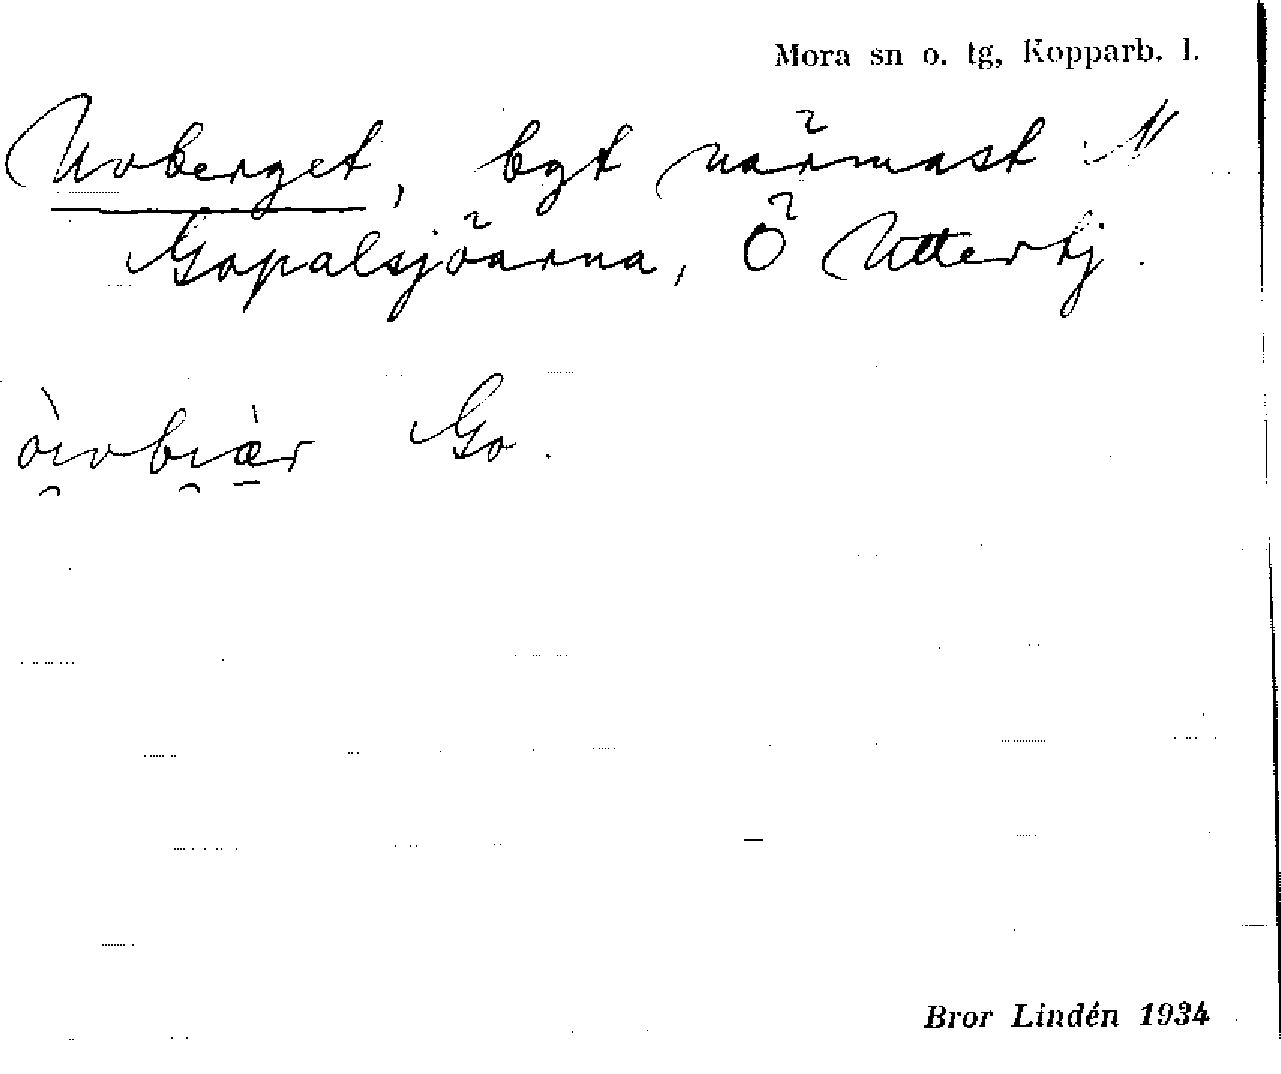 Mora sn o. tg, Kopparb. l.
Uvberget, bgt närmast N
Gopalsjöarna, Ö Utterbj.
Go.
Bror Lindén 1934